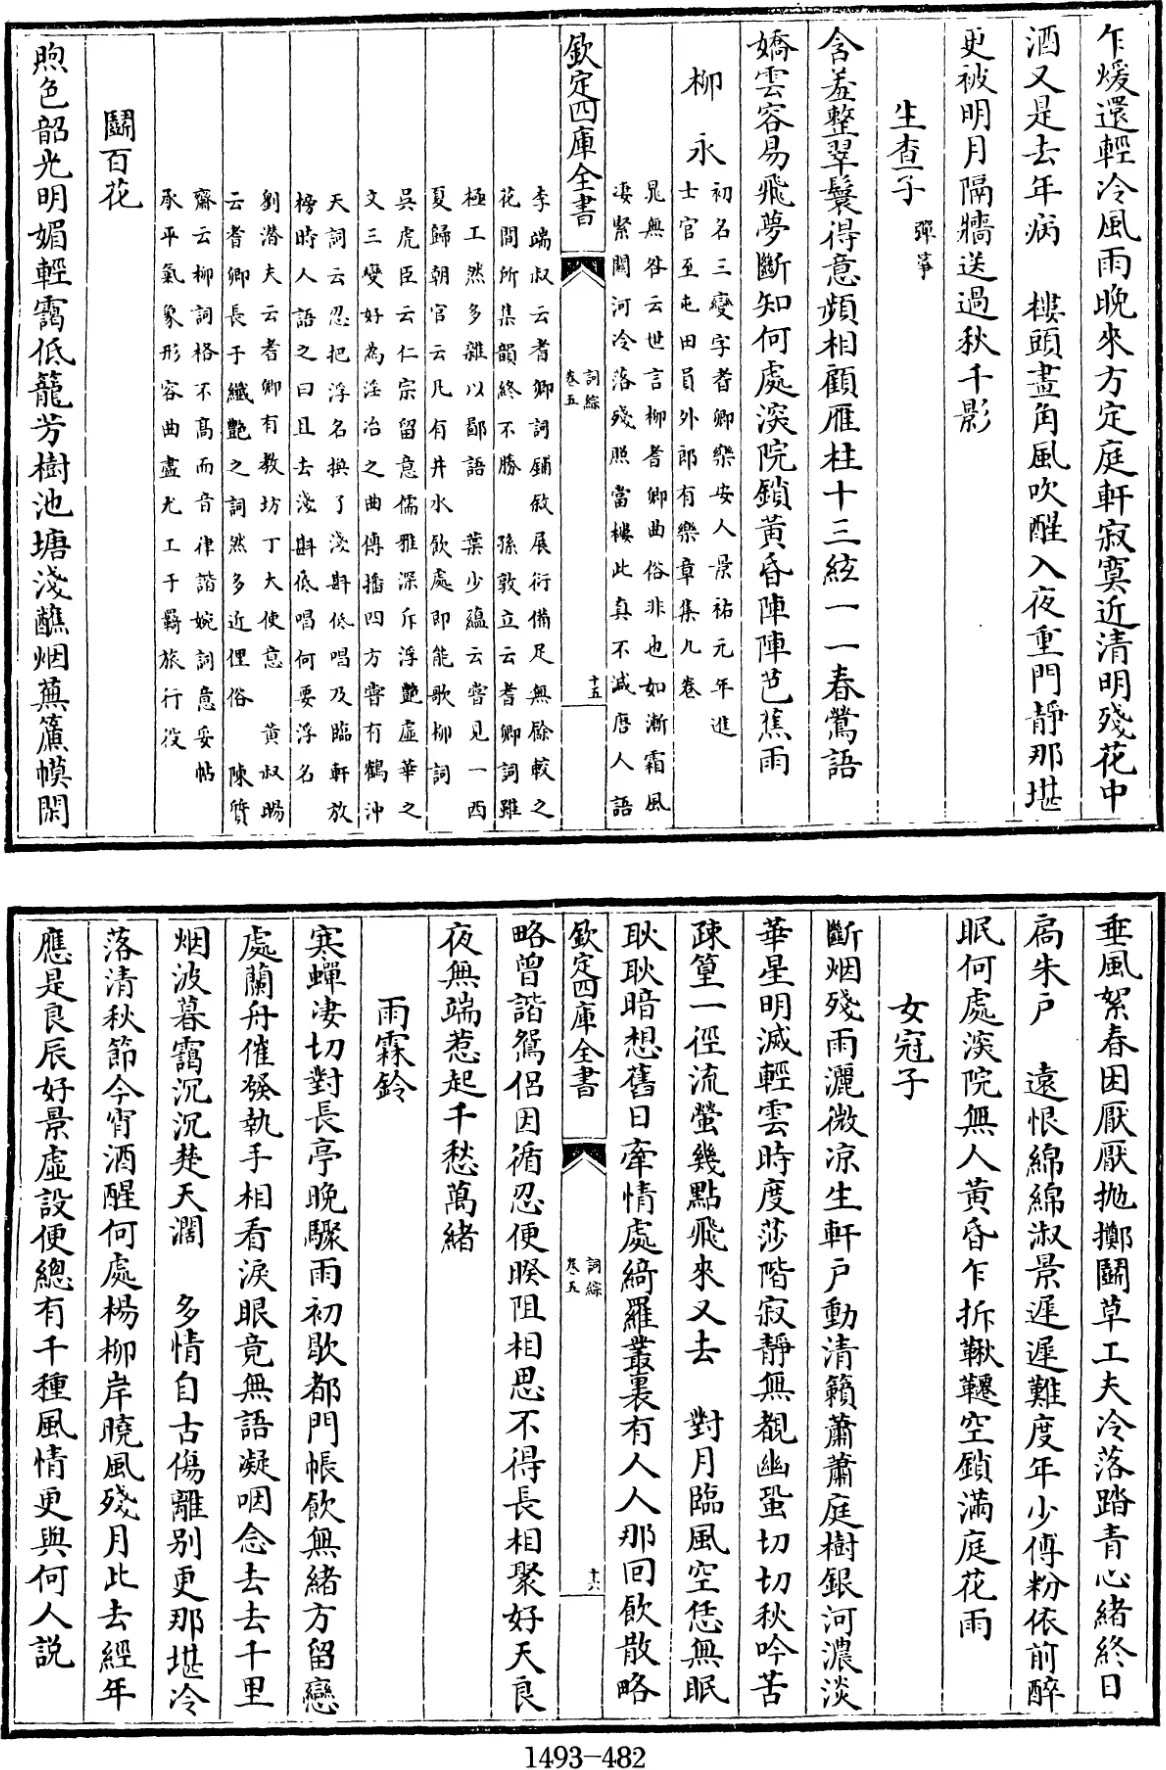 乍煖還輕冷風雨晚來方定庭軒寂寞近清明殘花中
酒又是去年病　樓頭畫角風吹醒入夜重門靜那堪
更被明月隔牆送過秋千影
生查子 彈箏
含羞整翠鬟得意頻相顧雁柱十三絃一一春鶯語
嬌雲容易飛夢斷知何處深院鎖黃昏陣陣芭蕉雨
柳永
初名三變字耆卿樂安人景祐元年進
士官至屯田員外郎有樂章集九卷
晁無咎云世言柳耆卿曲俗非也如漸霜風
凄緊關河冷落殘照當樓此真不減唐人語
欽定四庫全書
詞綜
卷五
十五
李端叔云耆卿詞鋪敘展衍備足無餘較之
花間所集韻終不勝　孫敦立云耆卿詞雖
極工然多雜以鄙語　葉少蘊云嘗見一西
夏歸朝官云凡有井水飲處即能歌柳詞
吳虎臣云仁宗留意儒雅深斥浮艷虛華之
文三變好為淫冶之曲傳播四方嘗有鶴沖
天詞云忍把浮名換了淺斟低唱及臨軒放
榜時人語之曰且去淺斟低唱何要浮名
劉潛夫云耆卿有教坊丁大使意　黃叔暘
云耆卿長于纖艷之詞然多近俚俗　陳質
齋云柳詞格不高而音律諧婉詞意妥帖
承平氣象形容曲盡尤工于羇旅行役
鬭百花
煦色韶光明媚輕靄低籠芳樹池塘淺蘸烟蕪簾幙閑
垂風絮春困厭厭拋擲鬭草工夫冷落踏青心緒終日
扃朱戶　遠恨綿綿淑景遲遲難度年少傅粉依前醉
眠何處深院無人黃昏乍拆鞦韆空鎖滿庭花雨
女冠子
斷烟殘雨灑微凉生軒戶動清籟蕭蕭庭樹銀河濃淡
華星明滅輕雲時度莎階寂靜無覩幽蛩切切秋吟苦
疎篁一徑流螢幾點飛來又去　對月臨風空恁無眠
耿耿暗想舊日牽情處綺羅叢裏有人人那回飲散略
欽定四庫全書
詞綜
卷五
十六
略曾諧鴛侶因循忍便睽阻相思不得長相聚好天良
夜無端惹起千愁萬緒
雨霖鈴
寒蟬凄切對長亭晚驟雨初歇都門帳飲無緒方留戀
處蘭舟催發執手相看淚眼竟無語凝咽念去去千里
烟波暮靄沉沉楚天濶　多情自古傷離別更那堪冷
落清秋節今宵酒醒何處楊柳岸曉風殘月此去經年
應是良辰好景虛設便總有千種風情更與何人説
1493-482